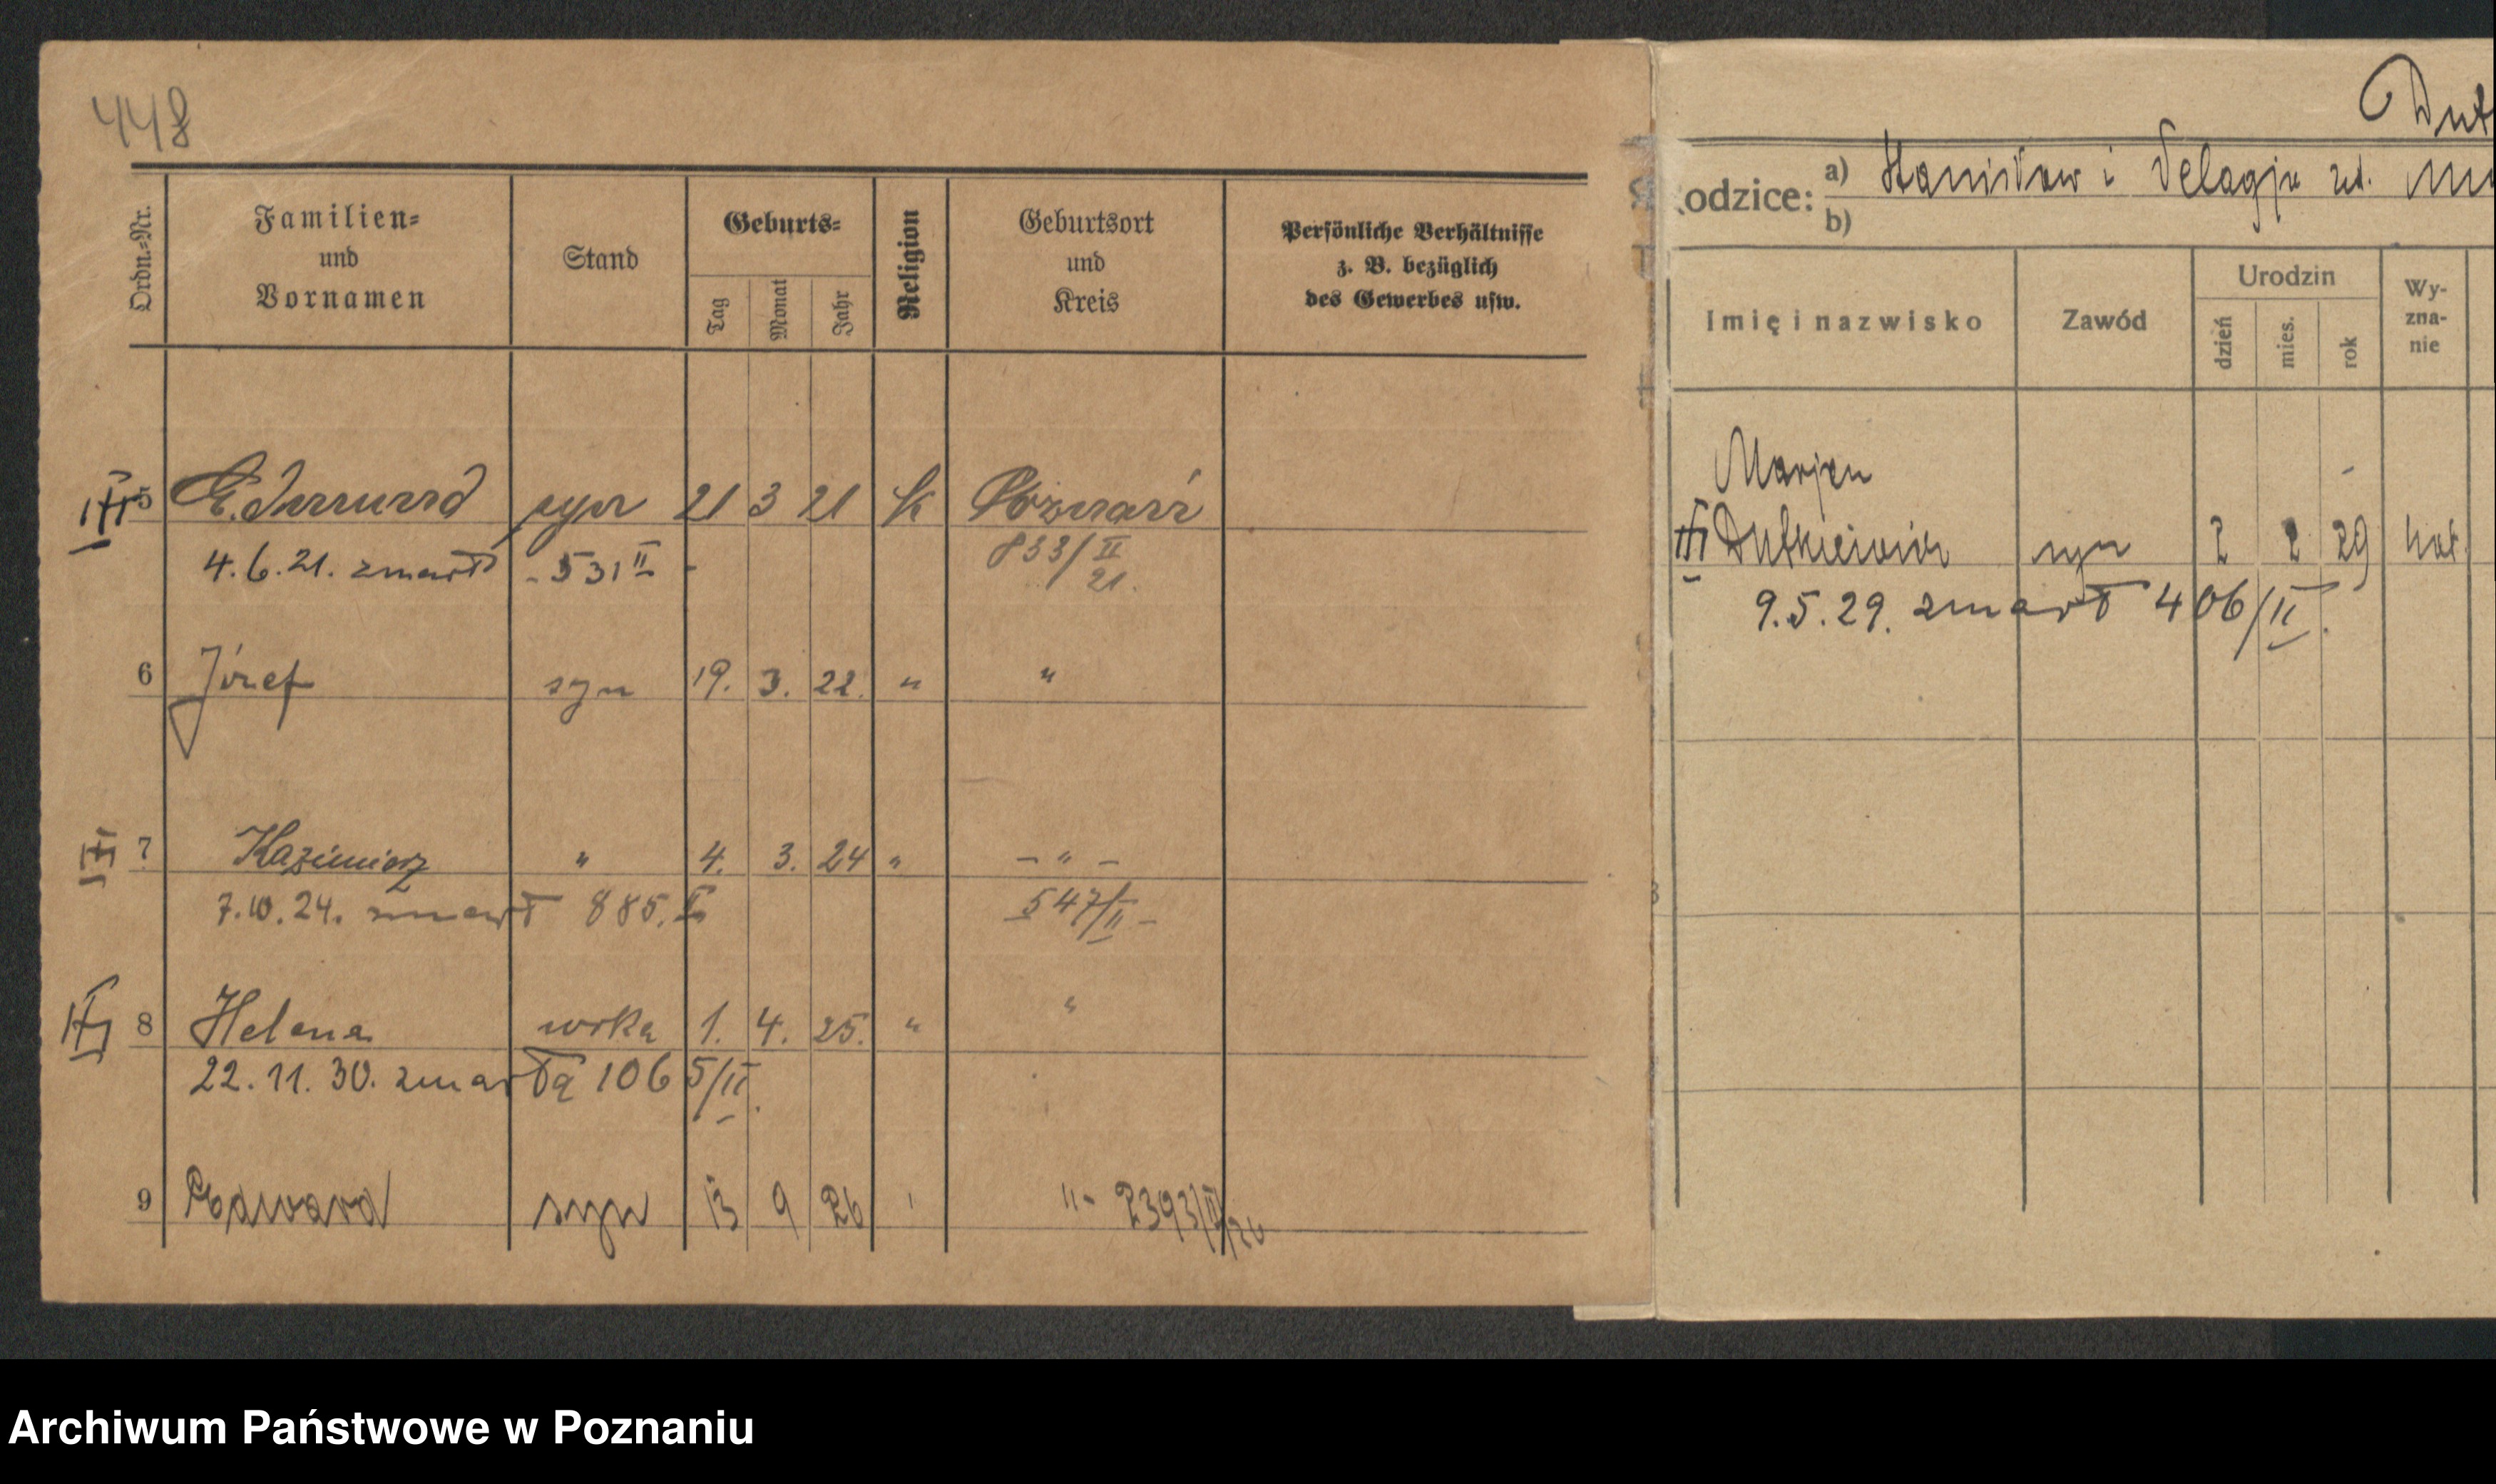 448
Ordn.=Nr.
Familien=
und
Vornamen
Stand
Geburts=
Tag
Monat
Jahr
Religion
Geburtsort
und
Kreis
Persönliche Verhältnisse
z. B. bezüglich
des Gewerbes usw.
5 Edmund syn 21 3 21 K Poznań
4.6.21. zmarł - 531 II - 833/II
21.
6 Józef syn 19. 3. 22. " "
7 Kazimierz " 4. 3. 24 " - " -
7.10.24. zmarł 885. II 547/II -
8 Helena 1. 4. 25. " "
22. 11. 30. zmarła 1065/II.
9 Edward syn 13 9 26 " - 2393/II/26
odzice: a) Stanisław i Pelagja
b)
Imię i nazwisko
Zawód
Urodzin
dzień
mies.
rok
Wy-
zna-
nie
Marjan
Dutkiewicz syn 2 2 29 kat.
9.5.29. zmarł 406/II.
Archiwum Państwowe w Poznaniu